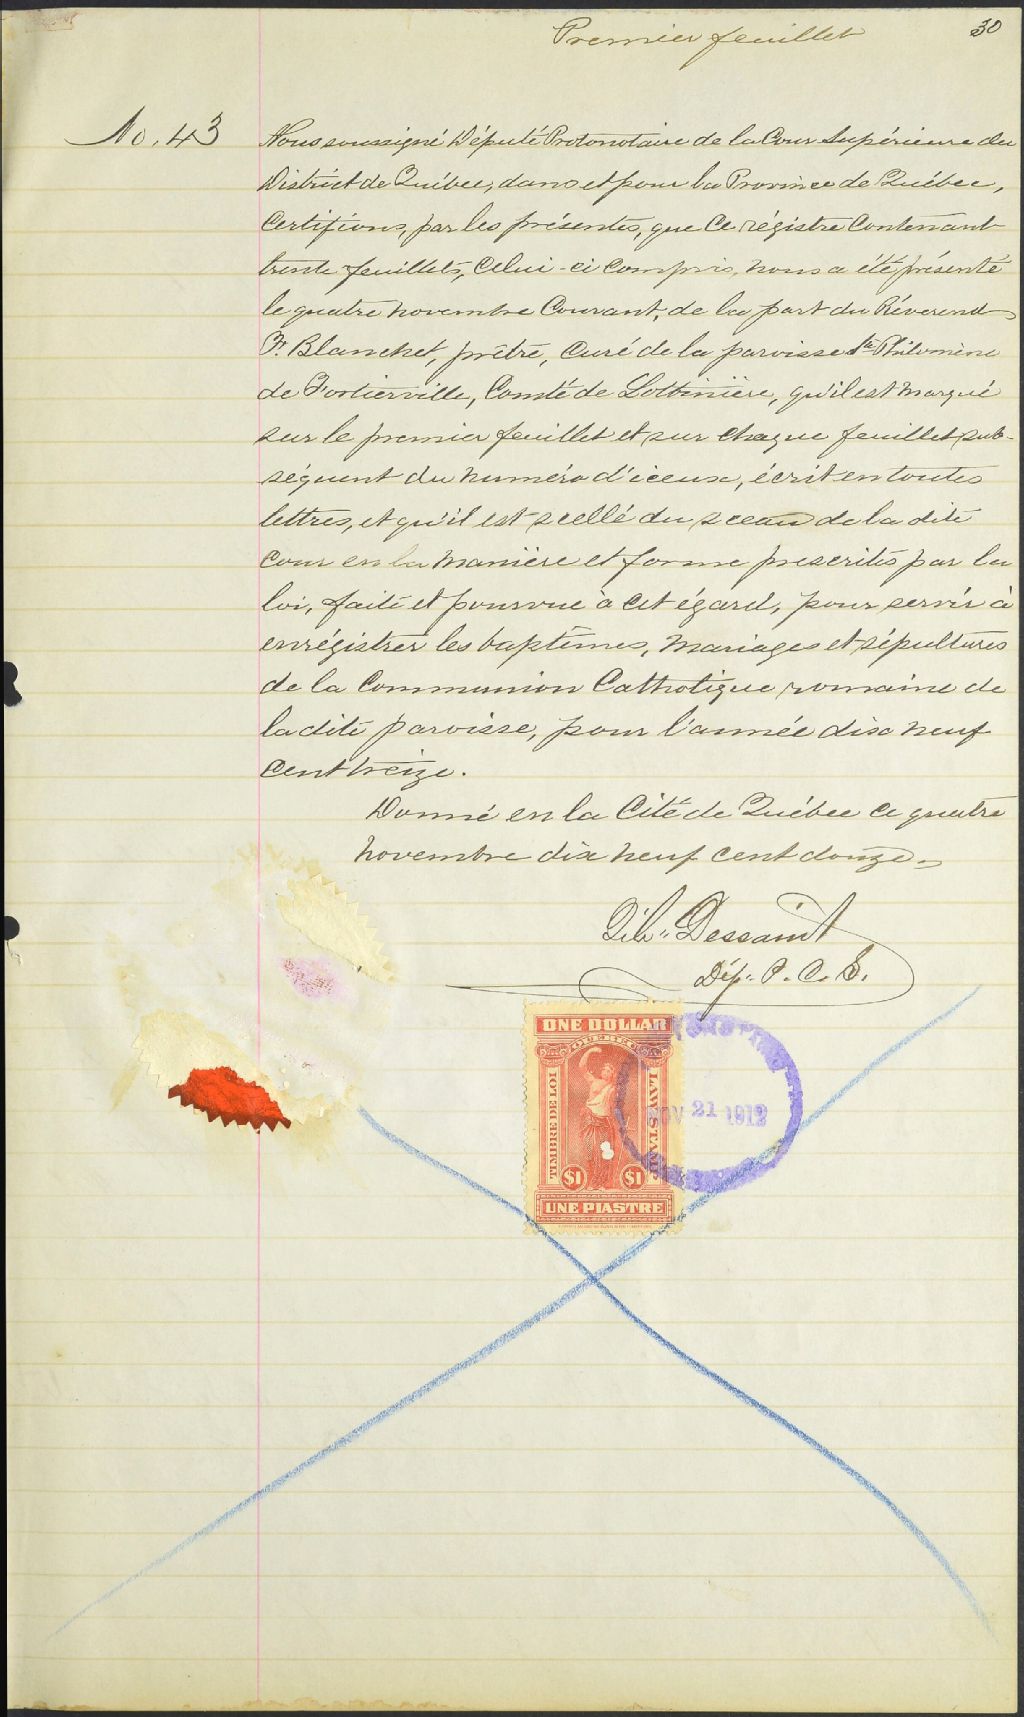 Premier feuillet
30
No. 43
Nous soussigné Député Protonotaire de la Cour Supérieure du
District de Québec, dans et pour la Province de Québec,
Certifions, par les présentes, que Ce régistre Contenant
trente feuillets, Celui-ci Compris, nous a été présenté
le quatre novembre Courant, de la part du Réverend
F. Blanchet, prêtre, Curé de la paroisse Ste Philomène
de Fortierville, Comté de Lotbinière, qu'il est marqué
sur le premier feuillet et sur chaque feuillet sub-
séquent du numéro d'iceux, écrit en toutes
lettres, et qu'il est scellé du sceau de la dite
Cour en la manière et forme prescrites par la
loi, faite et pourvue à cet égard, pour servir à
enrégistrer les baptêmes, mariages et sépultures
de la Communion Catholique romaine de
la dite paroisse, pour l'année dix neuf
Cent treize.
Donné en la Cité de Québec ce quatre
novembre dix neuf cent douze.
Dessaint
Dép. P. C. S.
ONE DOLLAR
QUEBEC
TIMBRE DE LOI
LAW STAMP
$1 $1
UNE PIASTRE
NOV 21 1912